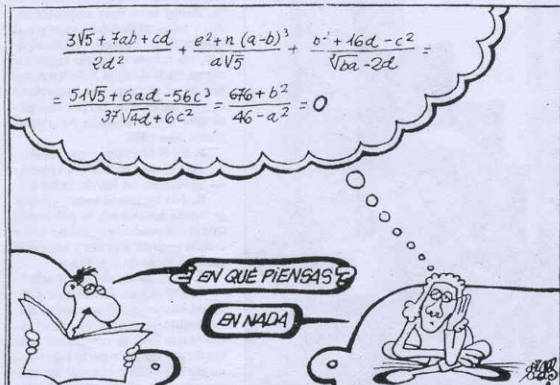 3√5 + 7ab + cd / 2d² + e² + n (a-b)³ / a√5 + b² + 16d - c² / ∛ba - 2d =
= 51√5 + 6ad - 56c³ / 37√4d + 6c² = 676 + b² / 46 - a² = 0
EN QUÉ PIENSAS
EN NADA